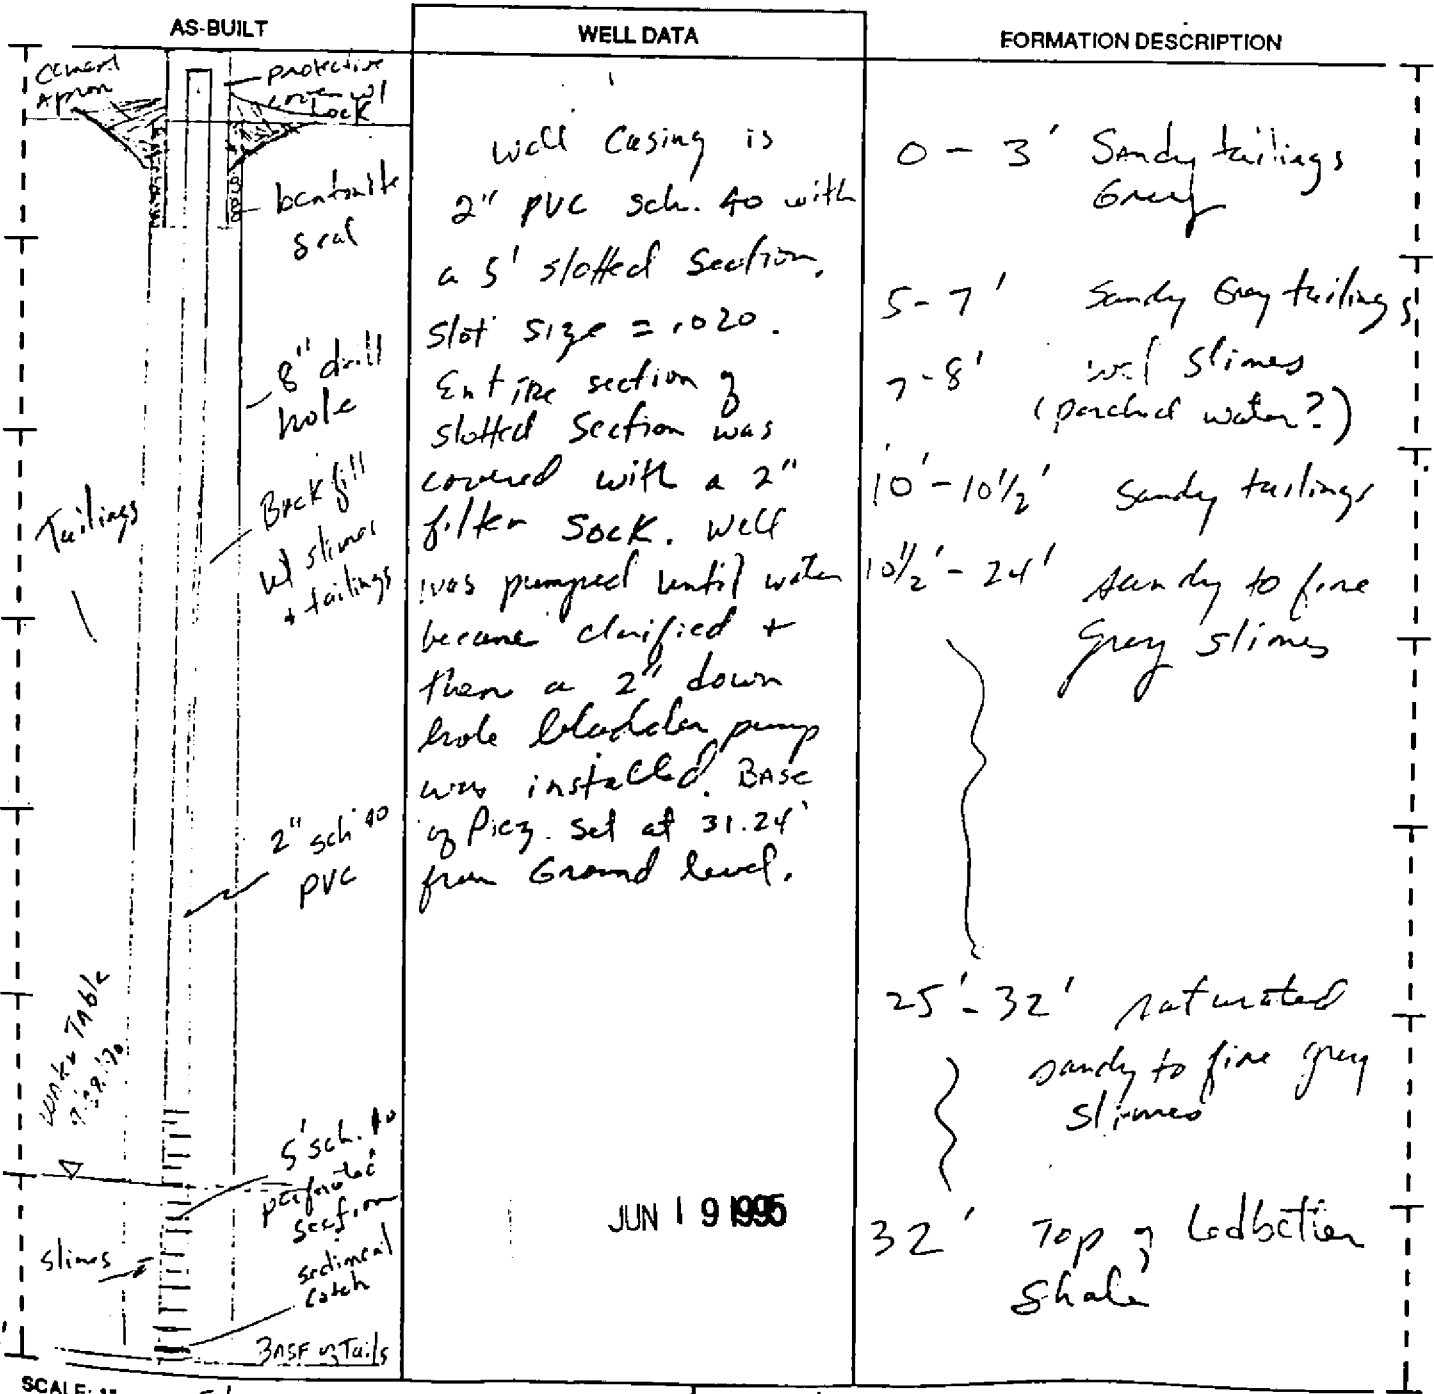 AS-BUILT
Cement
Apron
protective
cover w/
Lock
bentonite
seal
8" drill
hole
Backfill
w/ slimes
+ tailings
Tailings
2" sch 40
PVC
Water Table
5' sch. 40
perforated
section
sediment
catch
slimes
BASE of Tails
SCALE: 1"
WELL DATA
Well Casing is
2" PVC sch. 40 with
a 5' slotted Section.
Slot Size = .020.
Entire section of
slotted Section was
covered with a 2"
filter Sock. Well
was pumped until water
became clarified +
then a 2" down
hole bladder pump
was installed. BASE
of Piez. set at 31.24'
from Ground level.
JUN 19 1995
FORMATION DESCRIPTION
0 - 3' Sandy tailings
Grey
5 - 7' Sandy Grey tailings
7 - 8' wet Slimes
(perched water?)
10' - 10 1/2' Sandy tailings
10 1/2' - 24' sandy to fine
Gray slimes
25' - 32' saturated
sandy to fine grey
slimes
32' Top of Ledbetter
Shale